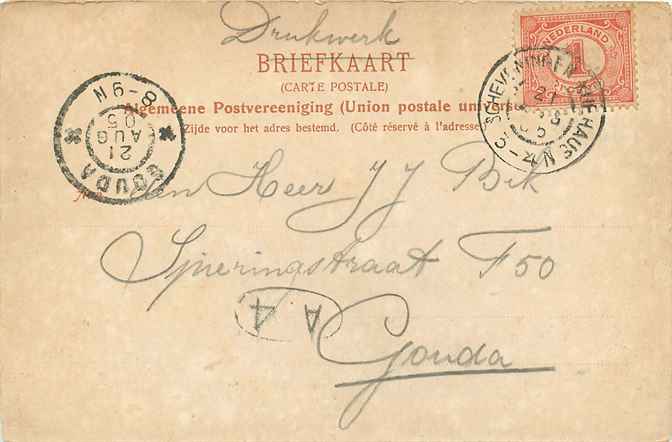 Drukwerk
BRIEFKAART
(CARTE POSTALE)
Algemeene Postvereeniging (Union postale
Zijde voor het adres bestemd. (Côté réservé à l'adresse
NEDERLAND
1
SCHEVENINGEN
21
GOUDA
21
AUG
05
8-9N
den Heer J J Bik
Spieringstraat F 50
Gouda
A
4